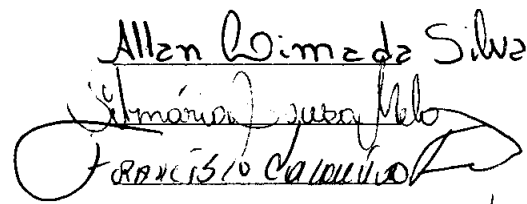 Allan Lima da Silva
Silmária Sousa Melo
Francisco